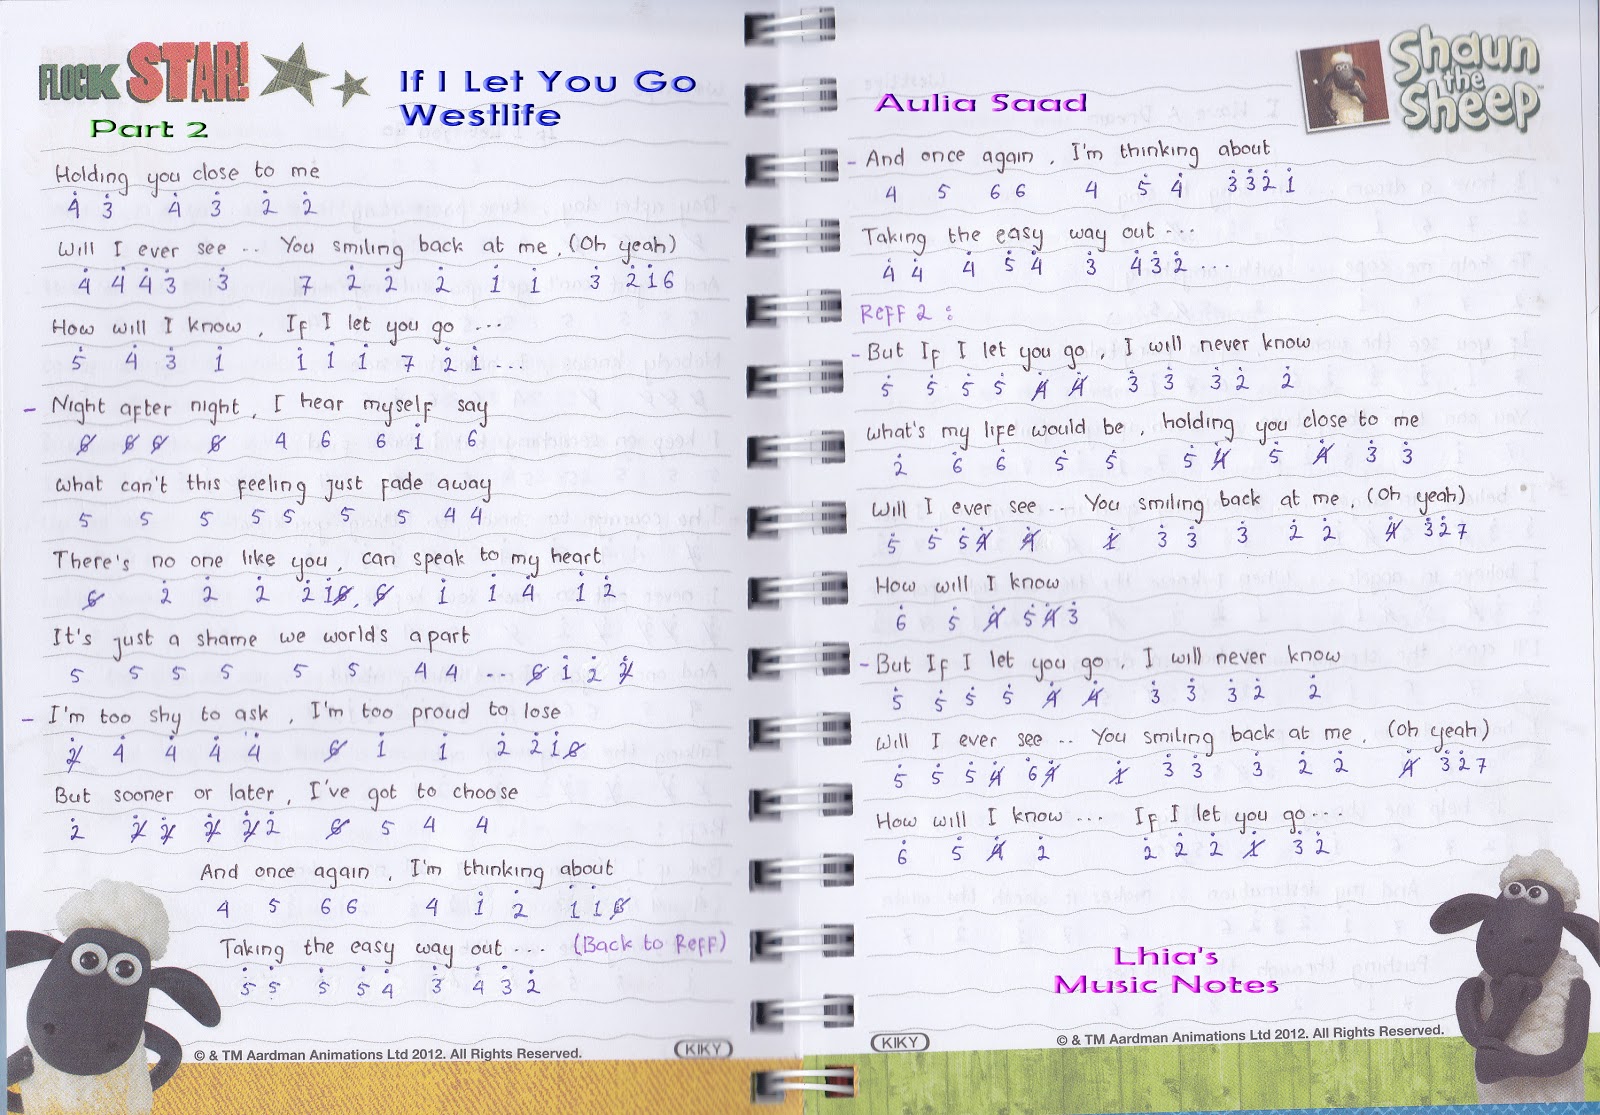 FLOCK STAR!
If I Let You Go
Westlife
Part 2
Holding you close to me
4 3 4 3 2 2
Will I ever see .. You smiling back at me, (Oh yeah)
4 4 4 3 3 7 2 2 2 1 1 3 2 1 6
How will I know, If I let you go ...
5 4 3 1 1 1 1 7 2 1 ...
- Night after night, I hear myself say
6 6 6 6 4 6 6 1 6
What can't this feeling just fade away
5 5 5 5 5 5 5 4 4
There's no one like you, can speak to my heart
6 2 2 2 2 1 6, 6 1 1 4 1 2
It's just a shame we worlds apart
5 5 5 5 5 5 4 4 ... 6 1 2 2
- I'm too shy to ask, I'm too proud to lose
2 4 4 4 4 6 1 1 2 2 1 6
But sooner or later, I've got to choose
2 2 2 2 2 2 6 5 4 4
And once again, I'm thinking about
4 5 6 6 4 1 2 1 1 6
Taking the easy way out ... (Back to Reff)
5 5 5 5 4 3 4 3 2
© & TM Aardman Animations Ltd 2012. All Rights Reserved.
KIKY
Aulia Saad
Shaun the Sheep™
- And once again, I'm thinking about
4 5 6 6 4 5 4 3 3 2 1
Taking the easy way out ...
4 4 4 5 4 3 4 3 2 ...
Reff 2 :
- But If I let you go, I will never know
5 5 5 5 4 4 3 3 3 2 2
what's my life would be, holding you close to me
2 6 6 5 5 5 4 5 4 3 3
Will I ever see .. You smiling back at me, (Oh yeah)
5 5 5 4 4 1 3 3 3 2 2 4 3 2 7
How will I know
6 5 4 5 4 3
- But If I let you go, I will never know
5 5 5 5 4 4 3 3 3 2 2
Will I ever see .. You smiling back at me, (Oh yeah)
5 5 5 4 6 4 1 3 3 3 2 2 4 3 2 7
How will I know ... If I let you go ...
6 5 4 2 2 2 2 1 3 2
Lhia's
Music Notes
© & TM Aardman Animations Ltd 2012. All Rights Reserved.
KIKY